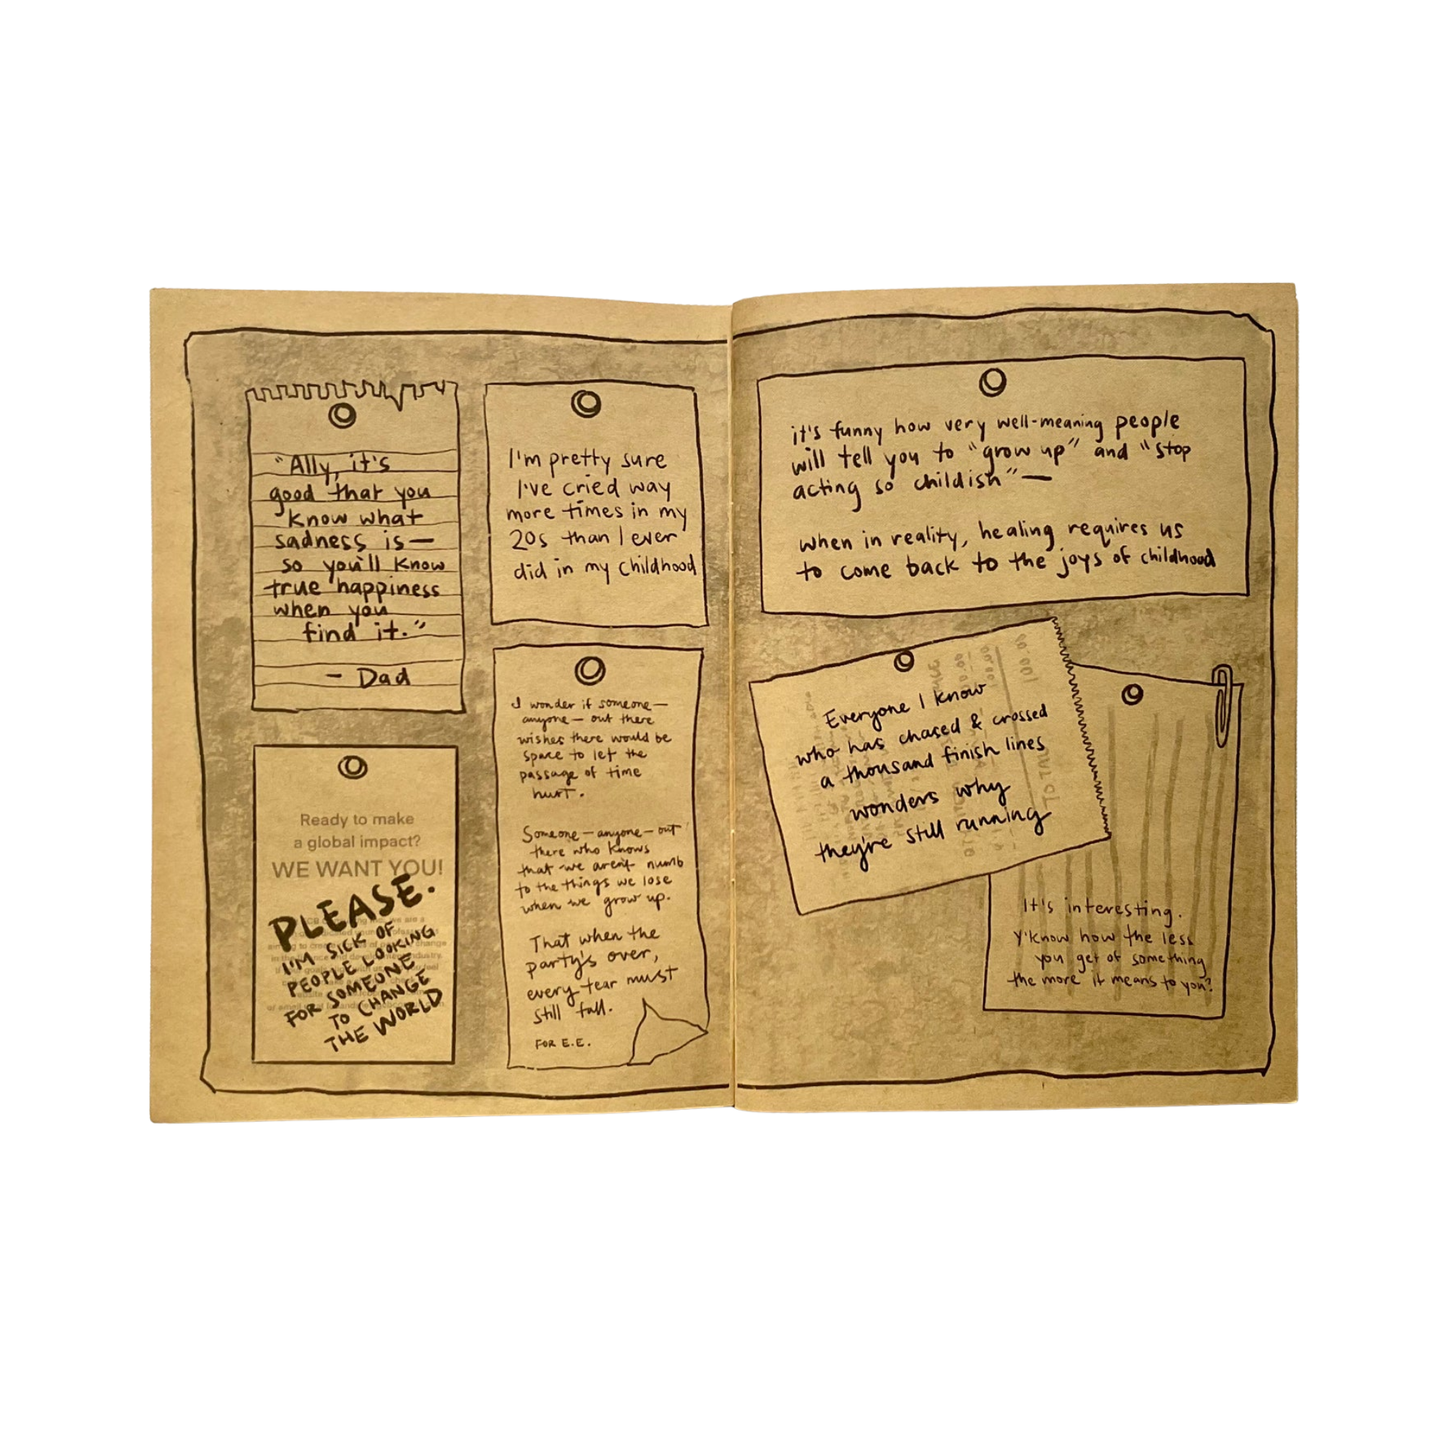 "Ally, it's
good that you
know what
sadness is—
so you'll know
true happiness
when you
find it."
- Dad
I'm pretty sure
I've cried way
more times in my
20s than I ever
did in my childhood
Ready to make
a global impact?
WE WANT YOU!
PLEASE.
I'M SICK OF
PEOPLE LOOKING
FOR SOMEONE
TO CHANGE
THE WORLD
I wonder if someone—
anyone— out there
wishes there would be
space to let the
passage of time
hurt.
Someone—anyone—out
there who knows
that we aren't numb
to the things we lose
when we grow up.
That when the
party's over,
every tear must
still fall.
FOR E.E.
it's funny how very well-meaning people
will tell you to "grow up" and "stop
acting so childish"—
when in reality, healing requires us
to come back to the joys of childhood
Everyone I know
who has chased & crossed
a thousand finish lines
wonders why
they're still running
TOTAL
100.00
It's interesting.
Y'know how the less
you get of something
the more it means to you?